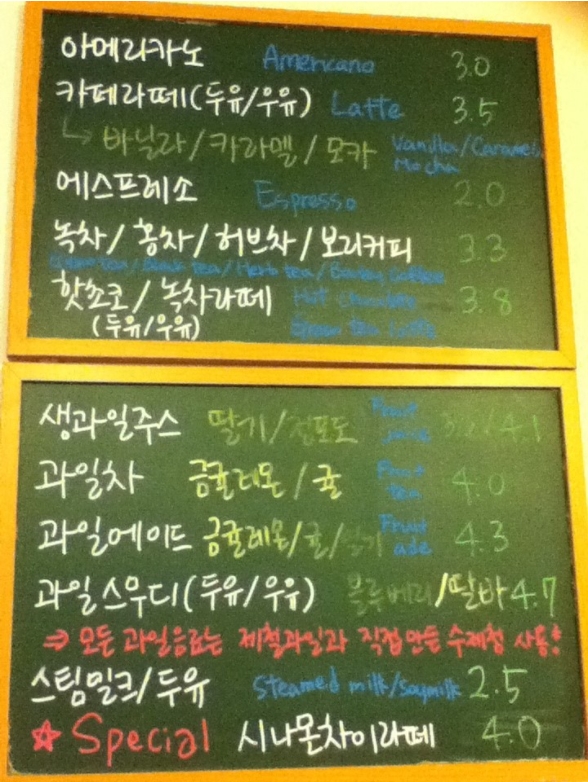 아메리카노 Americano 3.0
카페라떼(두유/우유) Latte 3.5
↳ 바닐라/카라멜/모카 Vanilla/Caramel
Mocha
에스프레소 Espresso 2.0
녹차/홍차/허브차/보리커피 3.3
Green tea/Black tea/Herb tea/Barley Coffee
핫쵸코/녹차라떼 Hot chocolate 3.8
(두유/우유) Green tea Latte
생과일주스 딸기/청포도 Fruit juice 4.1
과일차 금귤레몬/귤 Fruit tea 4.0
과일에이드 금귤레몬/귤/딸기 Fruit ade 4.3
과일스무디(두유/우유) 블루베리/딸바 4.7
⇒ 모든 과일음료는 제철과일과 직접 만든 수제청 사용!
스팀밀크/두유 Steamed milk/Soymilk 2.5
☆ Special 시나몬차이라떼 4.0